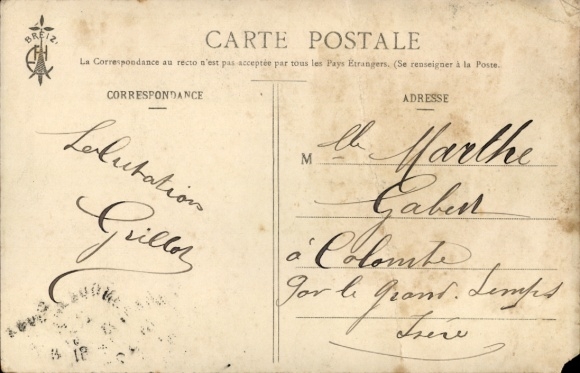 BREIZ
CARTE POSTALE
La Correspondance au recto n'est pas acceptée par tous les Pays Étrangers. (Se renseigner à la Poste.
CORRESPONDANCE
ADRESSE
Salutations
Grillot
Mlle Marthe
Gabert
à Colombe
Par le Grand-Lemps
Isère